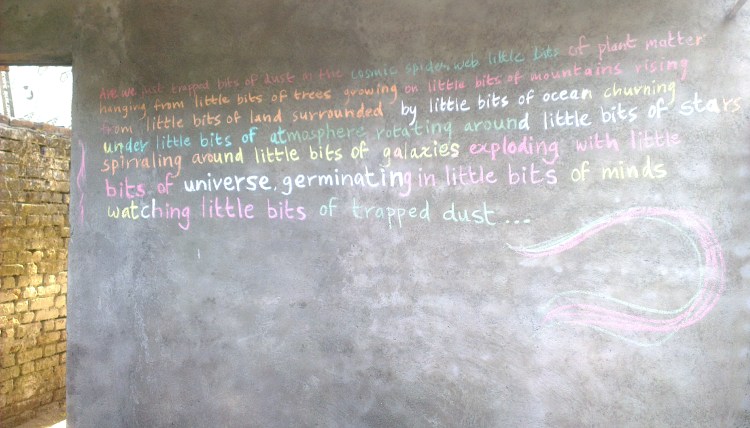 Are we just trapped bits of dust in the cosmic spider web little bits of plant matter
hanging from little bits of trees growing on little bits of mountains rising
from little bits of land surrounded by little bits of ocean churning
under little bits of atmosphere rotating around little bits of stars
spirraling around little bits of galaxies exploding with little
bits of universe, germinating in little bits of minds
watching little bits of trapped dust...